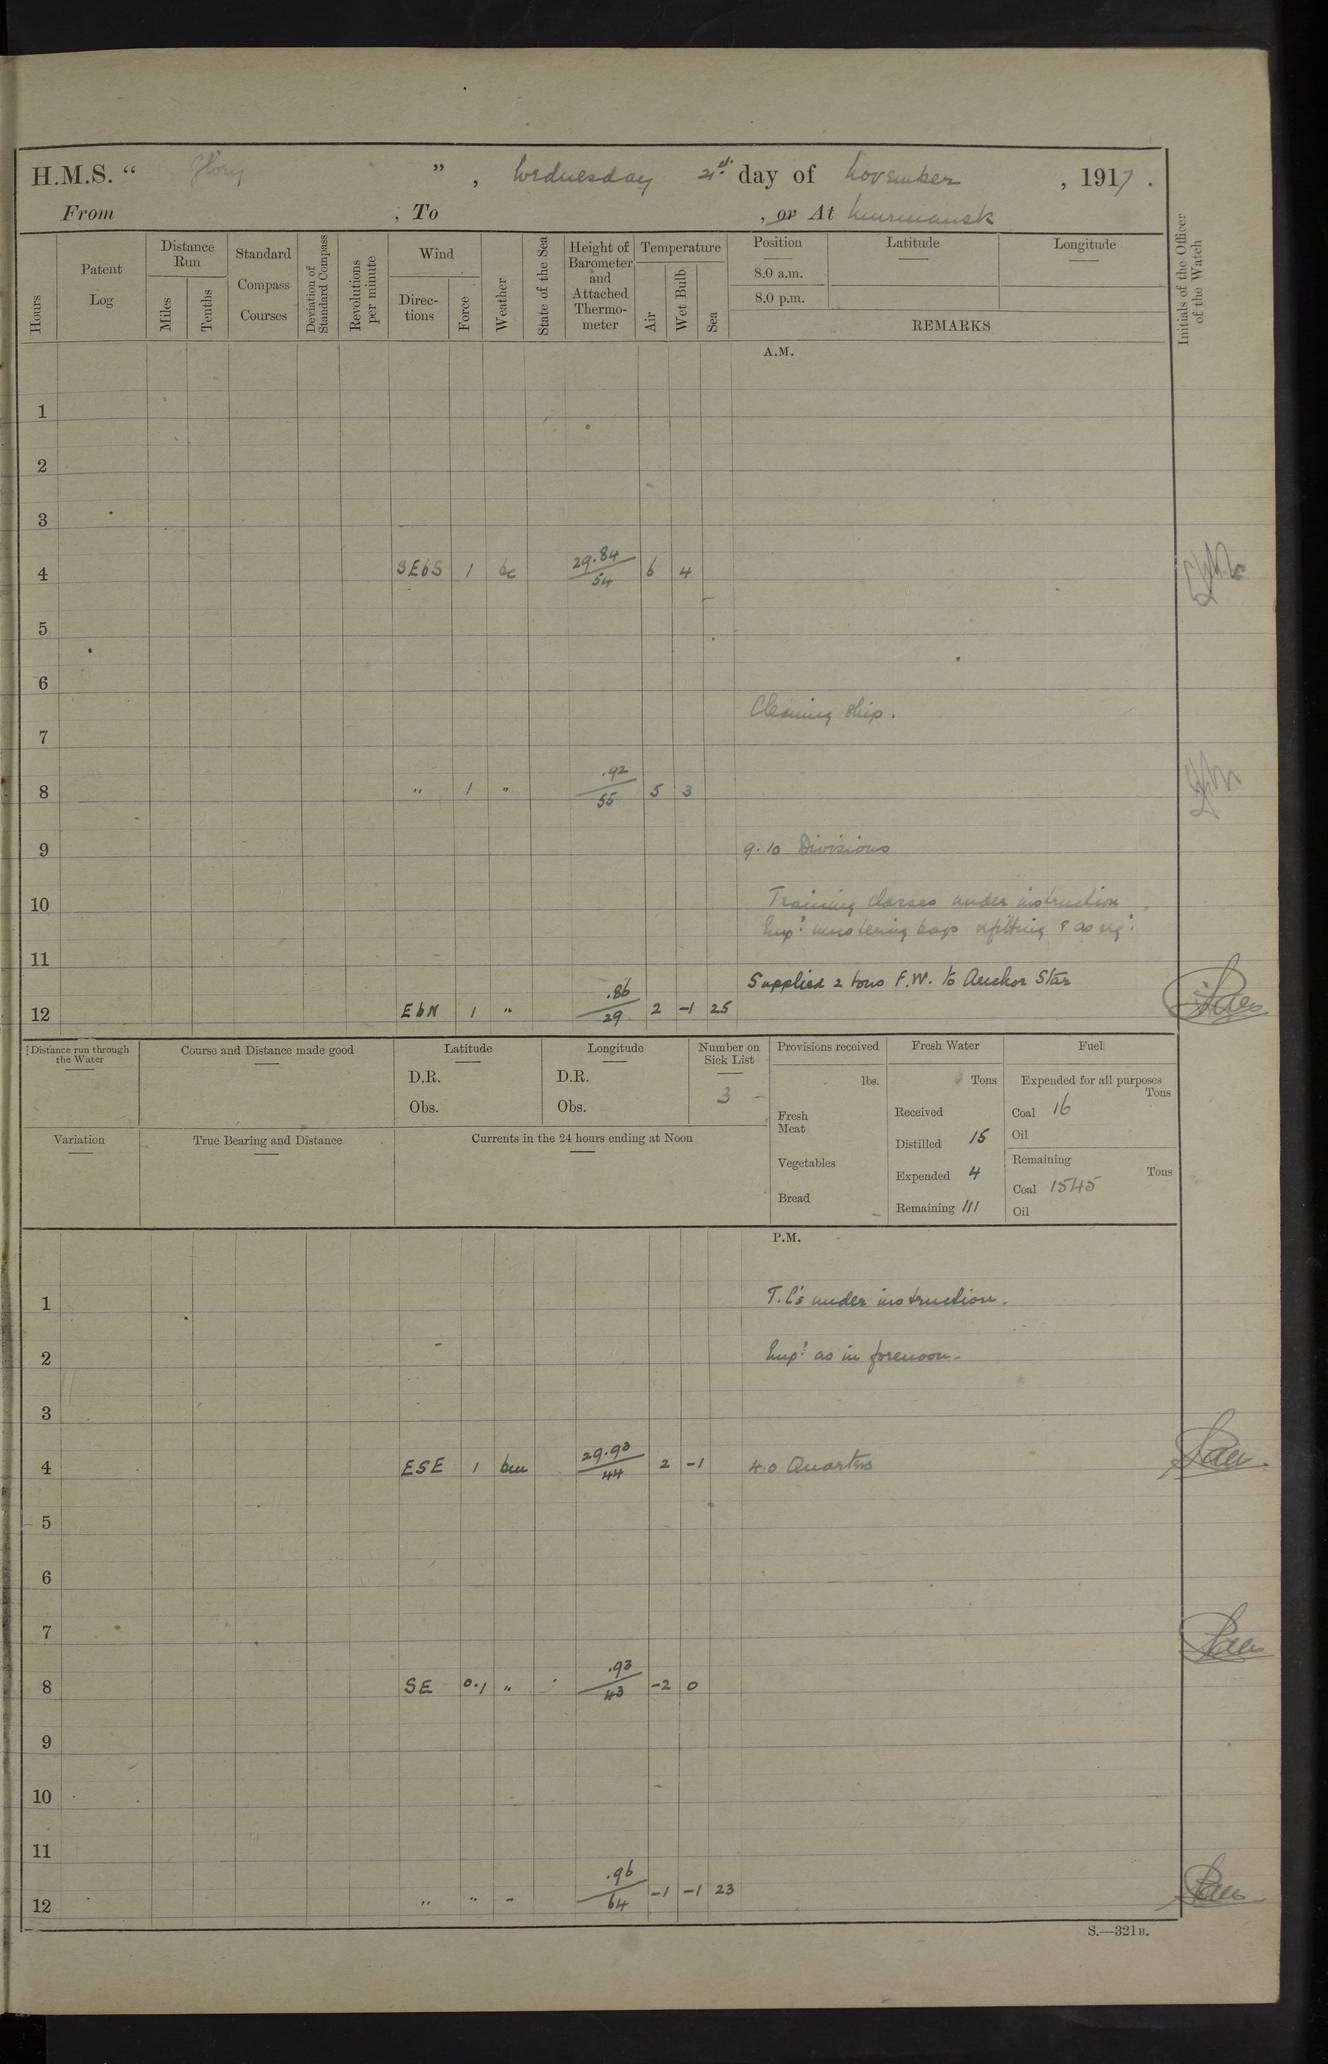 H.M.S. “ Glory ” , Wednesday 21st day of November , 1917 .
From , To , or At Murmansk
Hours
Patent Log
Distance Run
Miles
Tenths
Standard Compass Courses
Deviation of Standard Compass
Revolutions per minute
Wind
Directions
Force
Weather
State of the Sea
Height of Barometer and Attached Thermometer
Temperature
Air
Wet Bulb
Sea
Position
8.0 a.m.
8.0 p.m.
Latitude
Longitude
REMARKS
Initials of the Officer of the Watch
A.M.
1
2
3
4 SEbS 1 bc 29.84/54 6 4
5
6
Cleaning ship.
7
8 " 1 " .92/55 5 3
9 9.10 Divisions
10 Training classes under instruction
mustering bags refitting & as req.
11
Supplied 2 tons F.W. to Anchor Star
12 EbN 1 " .86/29 2 -1 25
Distance run through the Water
Course and Distance made good
Latitude
D.R.
Obs.
Longitude
D.R.
Obs.
Number on Sick List
3
Provisions received
lbs.
Fresh Meat
Vegetables
Bread
Fresh Water
Tons
Received
Distilled 15
Expended 4
Remaining 111
Fuel
Expended for all purposes
Tons
Coal 16
Oil
Remaining
Tons
Coal 1545
Oil
Variation
True Bearing and Distance
Currents in the 24 hours ending at Noon
P.M.
1 T.C's under instruction.
2 as in forenoon.
3
4 ESE 1 bm 29.93/44 2 -1 4.0 Quarters
5
6
7
8 SE 0.1 " .93/43 -2 0
9
10
11
12 " " " .96/64 -1 -1 23
S.—321B.